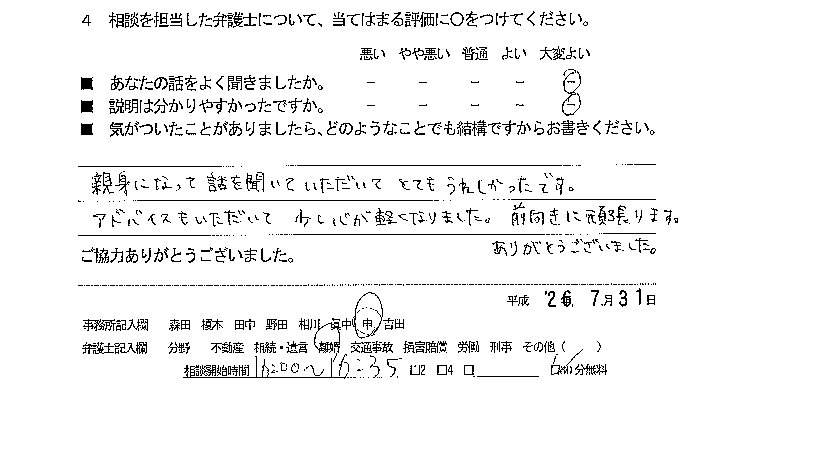 4 相談を担当した弁護士について、当てはまる評価に〇をつけてください。
悪い やや悪い 普通 よい 大変よい
■ あなたの話をよく聞きましたか。 − − − − −
■ 説明は分かりやすかったですか。 − − − − −
■ 気がついたことがありましたら、どのようなことでも結構ですからお書きください。
親身になって話を聞いていただいて とてもうれしかったです。
アドバイスもいただいて 少し心が軽くなりました。前向きに頑張ります。
ありがとうございました。
ご協力ありがとうございました。
平成 '26. 7.月31日
事務所記入欄 森田 榎本 田中 野田 相川 眞中 申 吉田
弁護士記入欄 分野 不動産 相続・遺言 離婚 交通事故 損害賠償 労働 刑事 その他( )
相談開始時間 16:00〜16:35 □2 □4 □ □ 分無料